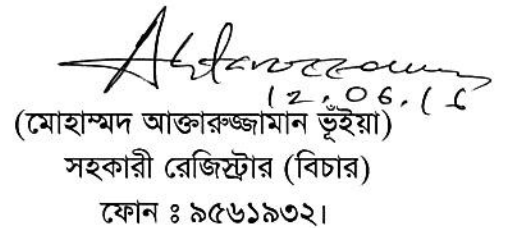 12.06.16
(মোহাম্মদ আক্তারুজ্জামান ভূঁইয়া)
সহকারী রেজিস্ট্রার (বিচার)
ফোন ঃ ৯৫৬১৯৩২।